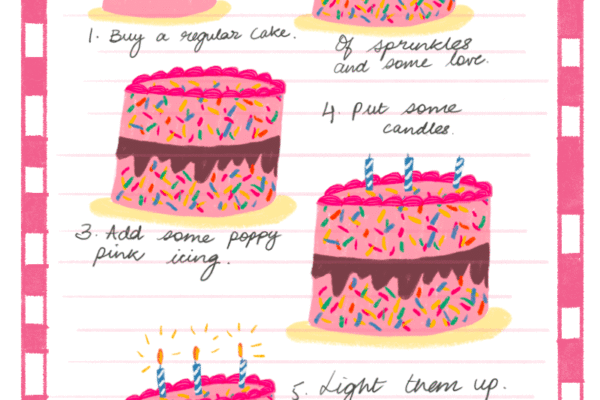 1. Buy a regular cake.
Of sprinkles
and some love.
3. Add some poppy
pink icing.
4. Put some
candles.
5. Light them up.